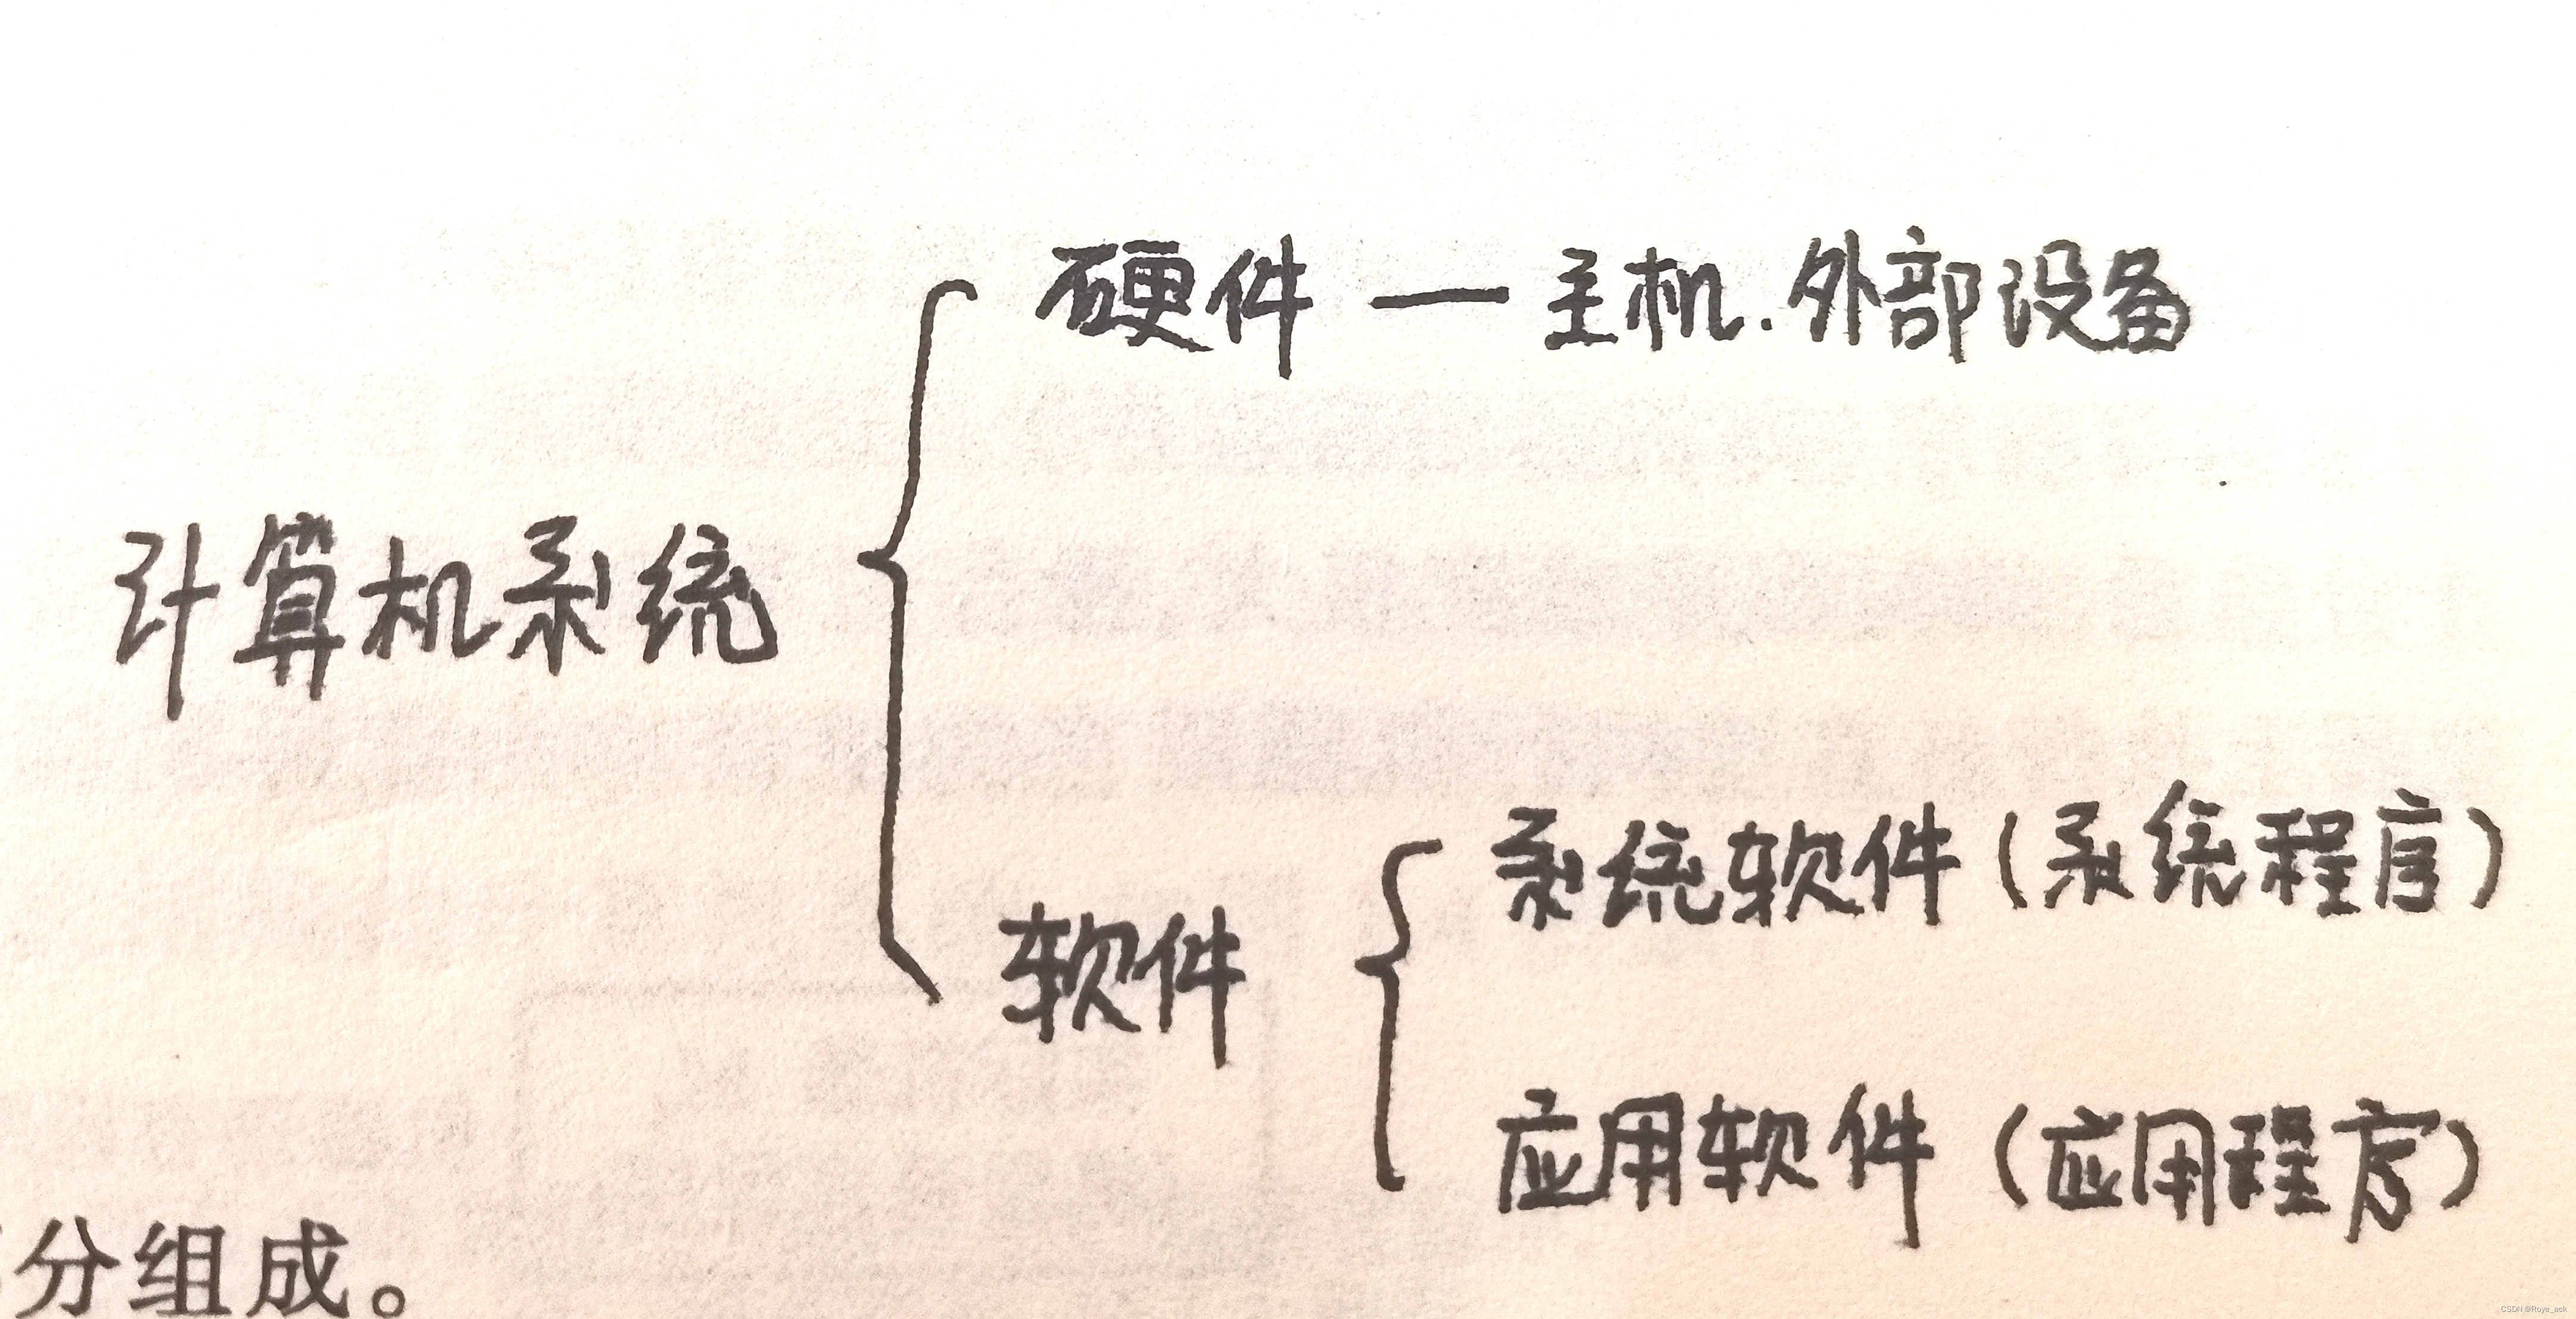 硬件 — 主机.外部设备
计算机系统
系统软件(系统程序)
软件
应用软件(应用程序)
分组成。
CSDN @Roya_ack